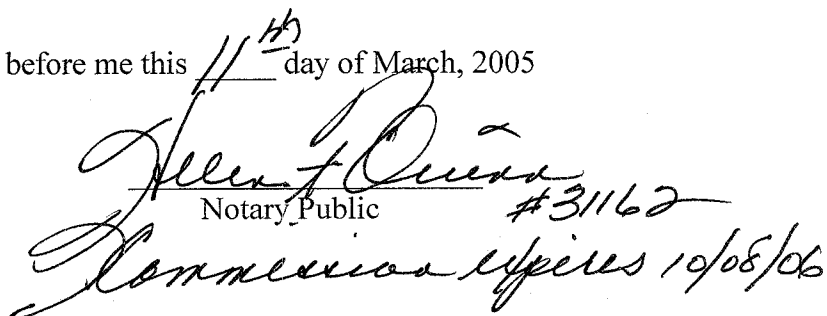 before me this 11th day of March, 2005
Helen F Quinn
Notary Public #31162
Commission expires 10/08/06